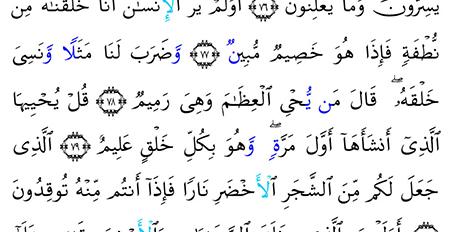 يُسِرُّونَ وَمَا يُعْلِنُونَ ﴿٧٦﴾ أَوَلَمْ يَرَ الْإِنسَٰنُ أَنَّا خَلَقْنَٰهُ مِن
نُّطْفَةٍ فَإِذَا هُوَ خَصِيمٌ مُّبِينٌ ﴿٧٧﴾ وَضَرَبَ لَنَا مَثَلًا وَنَسِىَ
خَلْقَهُۥ ۖ قَالَ مَن يُحْىِ الْعِظَٰمَ وَهِىَ رَمِيمٌ ﴿٧٨﴾ قُلْ يُحْيِيهَا
الَّذِىٓ أَنشَأَهَآ أَوَّلَ مَرَّةٍ ۖ وَهُوَ بِكُلِّ خَلْقٍ عَلِيمٌ ﴿٧٩﴾ الَّذِى
جَعَلَ لَكُم مِّنَ الشَّجَرِ الْأَخْضَرِ نَارًا فَإِذَآ أَنتُم مِّنْهُ تُوقِدُونَ